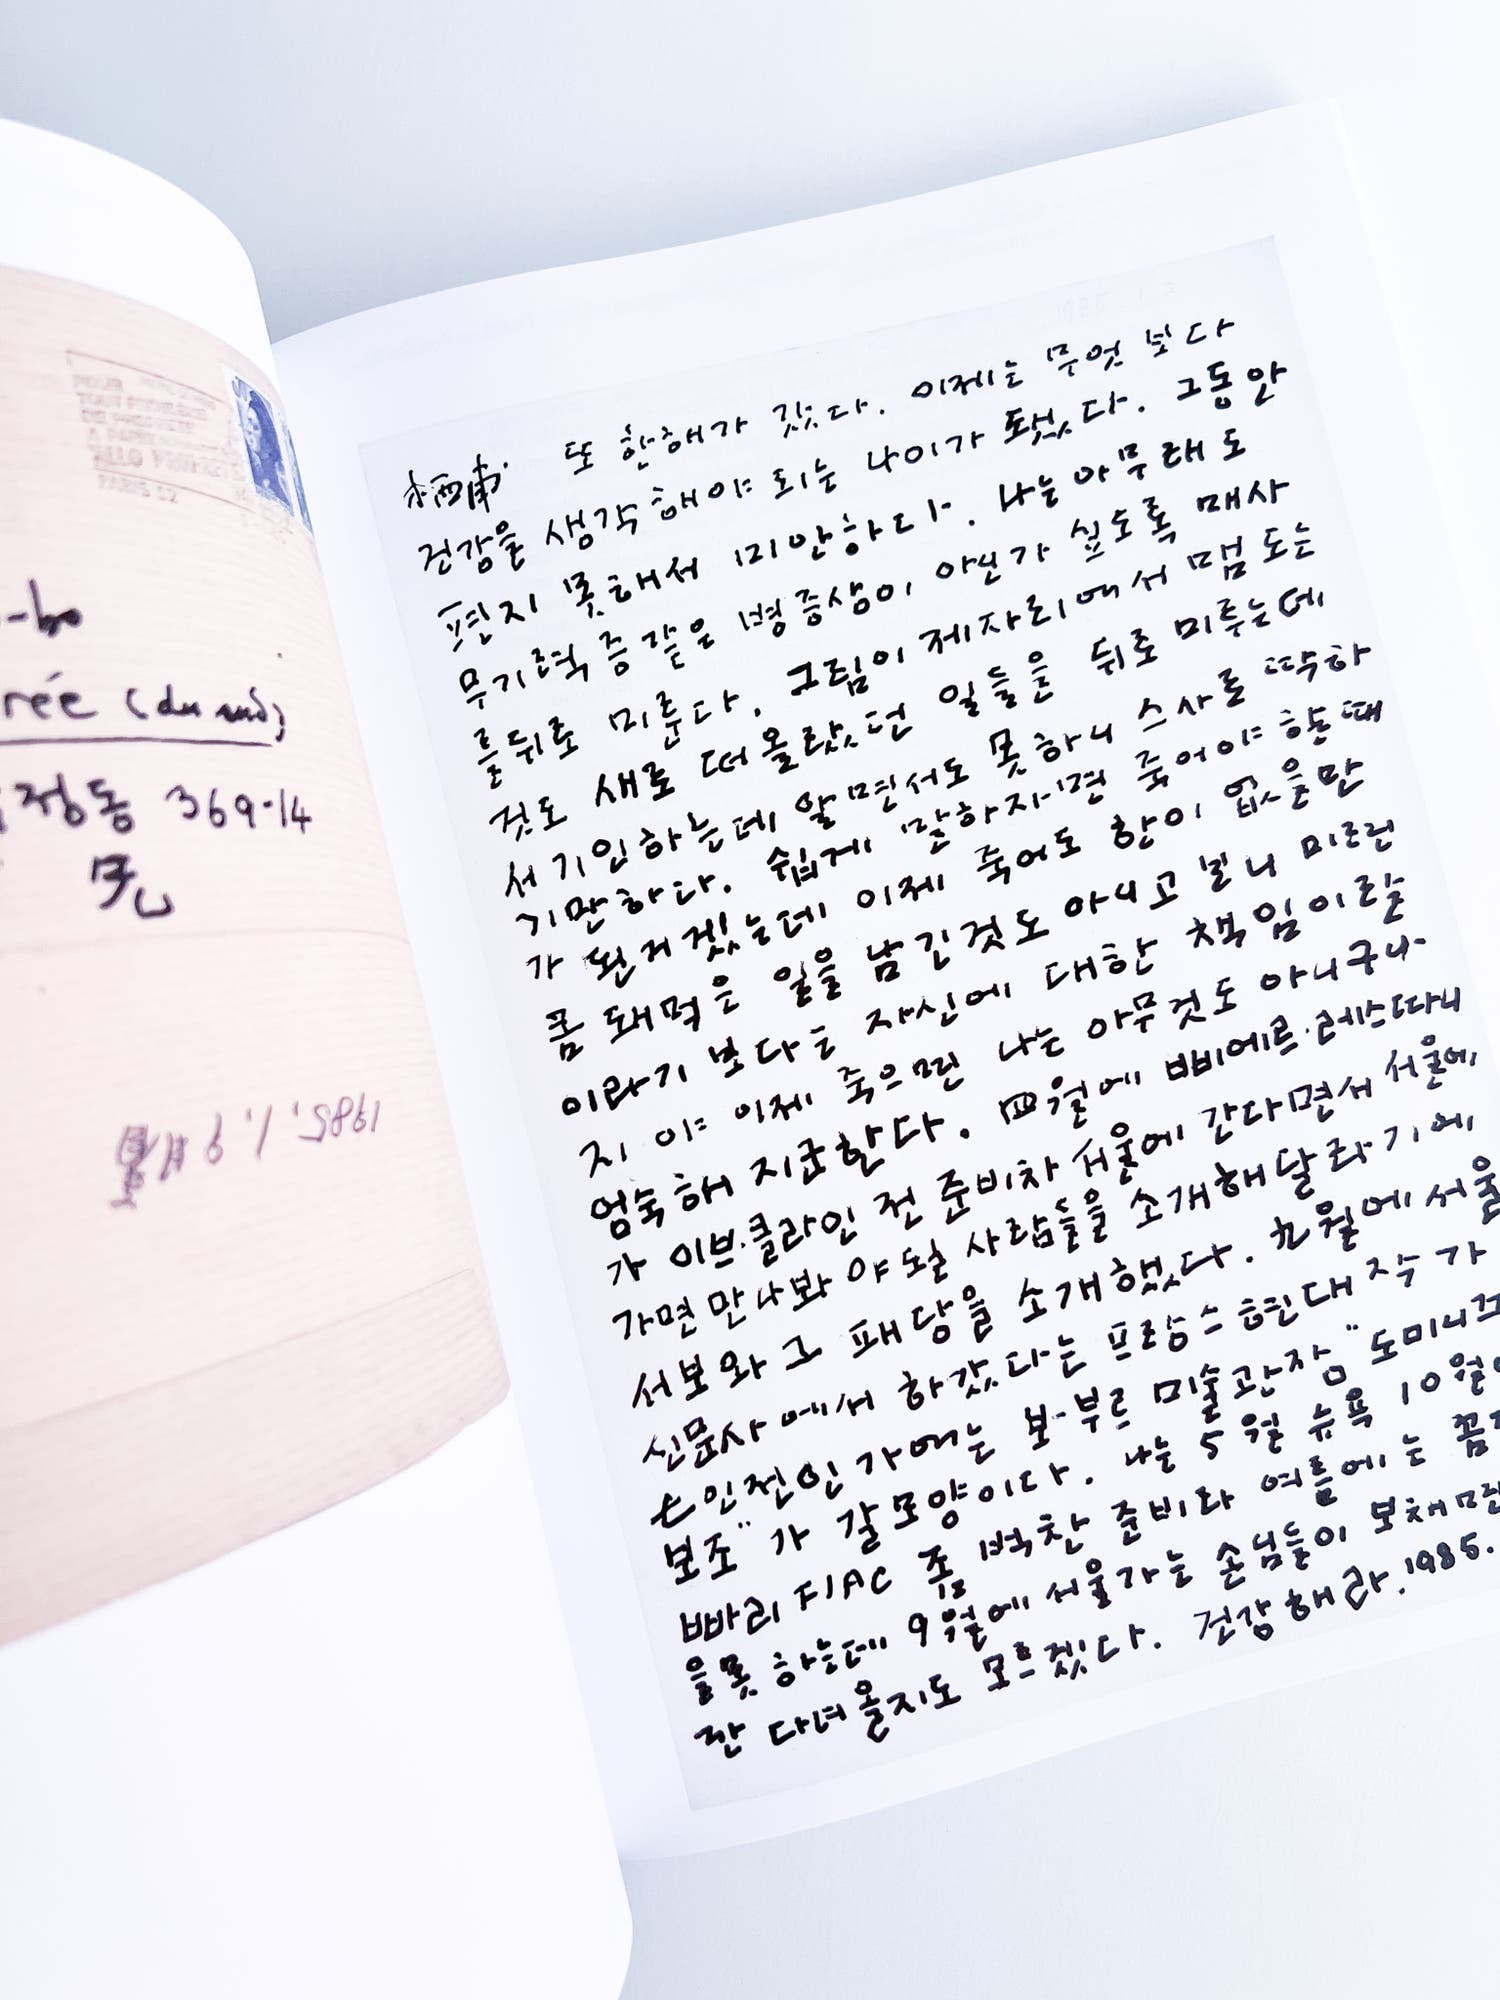 POUR
PARIS 12
-bo
rée (du sud)
정동 369-14
兄
1985. 1. 9
栖甫. 또 한해가 갔다. 이제는 무엇 보다
건강을 생각해야 되는 나이가 됐다. 그동안
편지 못해서 미안하다. 나는 아무래도
무기력증 같은 병증생이 아닌가 싶도록 매사
를 뒤로 미룬다. 그림이 제자리에서 맴도는
것도 새로 떠올랐던 일들을 뒤로 미루는데
서 기인하는데 알면서도 못하니 스사로 딱하
기만하다. 쉽게 말하자면 죽어야 할때
가 된거겠는데 이제 죽어도 한이 없을만
큼 돼먹은 일을 남긴것도 아니고 보니 미련
이라기 보다는 자신에 대한 책임이랄
지 이제 죽으면 나는 아무것도 아니구나
엄숙해 지군한다. 四월에 삐에르·레스따니
가 이브·클라인 전 준비차 서울에 간다면서 서울에
가면 만나봐야 될 사람들을 소개해달라기에,
서보와 그 패당을 소개했다. 九월에 서울
신문사에서 하갔다는 프랑스 현대 작가
七인전인가에는 보·부르 미술관장 "도미니끄
보조"가 갈모양이다. 나는 5월 뉴욕 10월
빠리 FIAC 좀 벅찬 준비라 여름에는 꼼
을못 하는데 9월에 서울가는 손님들이 보채면
잔 다녀올지도 모르겠다. 건강해라. 1985.